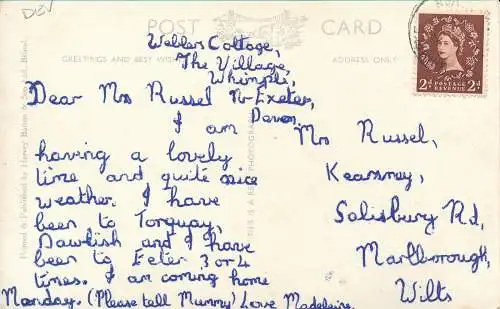 DEV
POST CARD
GREETINGS AND BEST WISH
ADDRESS ONLY
Webber Cottage,
The Village
Whimple,
Nr Exeter,
Devon.
Dear Mrs Russel
I am
having a lovely
time and quite nice
weather. I have
been to Torquay,
Dawlish and I have
been to Exeter 3 or 4
times. I am coming home
Monday. (Please tell Mummy) Love Madeleine.
Mrs Russel,
Kearsney,
Salisbury Rd,
Marlborough,
Wilts
Printed & Published by Harvey Barton & Son Ltd., Bristol.
THIS IS A REAL PHOTOGRAPH
2d POSTAGE REVENUE 2d